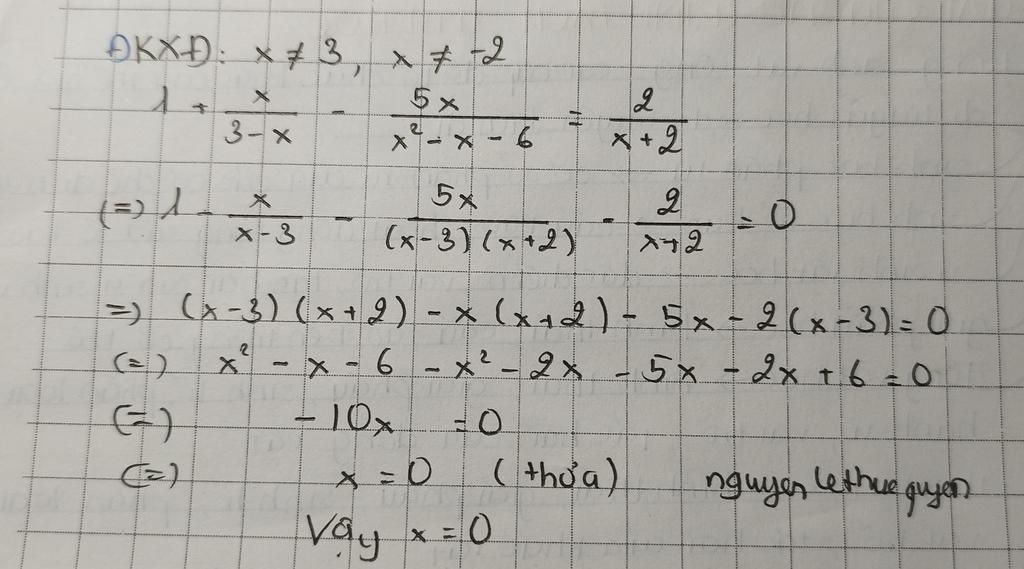 ĐKXĐ: x ≠ 3, x ≠ -2
1 + x/(3-x) - 5x/(x² - x - 6) = 2/(x+2)
(=) 1 - x/(x-3) - 5x/((x-3)(x+2)) - 2/(x+2) = 0
=) (x-3)(x+2) - x(x+2) - 5x - 2(x-3) = 0
(=) x² - x - 6 - x² - 2x - 5x - 2x + 6 = 0
(=) -10x = 0
(=) x = 0 (thỏa) nguyen lethucquyen
Vậy x = 0